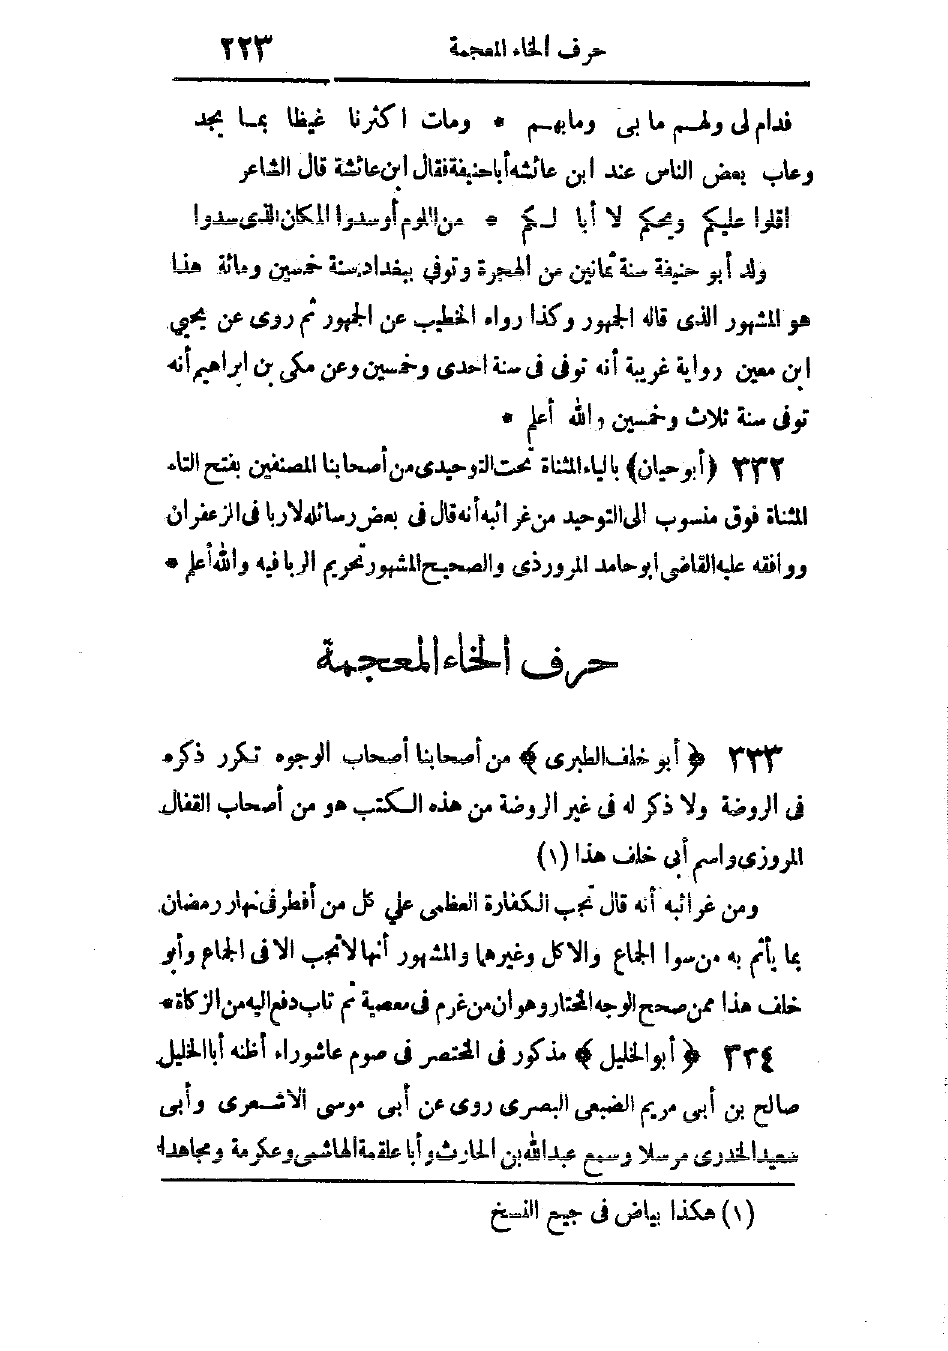 حرف الخاء المعجمة ٢٢٣
فدام لى ولهم ما بى وما بهم * ومات اكثرنا غيظا بما يجد
وعاب بعض الناس عند ابن عائشه أبا حنيفة فقال ابن عائشة قال الشاعر
اقلوا عليكم ويحكم لا أبا لكم * من اللوم أو سدوا المكان الذى سدوا
ولد أبو حنيفة سنة ثمانين من الهجرة وتوفي ببغداد سنة خمسين ومائة هذا
هو المشهور الذى قاله الجمهور وكذا رواه الخطيب عن الجمهور ثم روى عن يحيي
ابن معين رواية غريبة أنه توفى فى سنة احدى وخمسين وعن مكى بن ابراهيم أنه
توفى سنة ثلاث وخمسين والله أعلم *
٣٣٢ (أبو حيان) بالياء المثناة تحت التوحيدى من أصحابنا المصنفين بفتح التاء
المثناة فوق منسوب الى التوحيد من غرائبه أنه قال فى بعض رسائله لا ربا فى الزعفران
ووافقه عليه القاضى ابو حامد المروروذى والصحيح المشهور تحريم الربا فيه والله أعلم *
حرف الخاء المعجمة
٣٣٣ ﴿ أبو خلف الطبرى ﴾ من أصحابنا أصحاب الوجوه تكرر ذكره
فى الروضة ولا ذكر له فى غير الروضة من هذه الكتب هو من أصحاب القفال
المروزى واسم أبى خلف هذا (١)
ومن غرائبه أنه قال تجب الكفارة العظمى علي كل من أفطر فى نهار رمضان
بما يأثم به من سوا الجماع والاكل وغيرها والمشهور أنها لا تجب الا فى الجماع وأبو
خلف هذا ممن صحح الوجه المختار وهو ان من غرم فى معصية ثم تاب دفع اليه من الزكاة *
٣٣٤ ﴿ أبو الخليل ﴾ مذكور فى المختصر فى صوم عاشوراء أظنه أبا الخليل
صالح بن أبى مريم الضبعى البصرى روى عن أبى موسى الاشعرى وأبى
سعيد الخدرى مرسلا وسمع عبد الله بن الحارث وأبا علقمة الهاشمى وعكرمة ومجاهدا
(١) هكذا بياض فى جميع النسخ